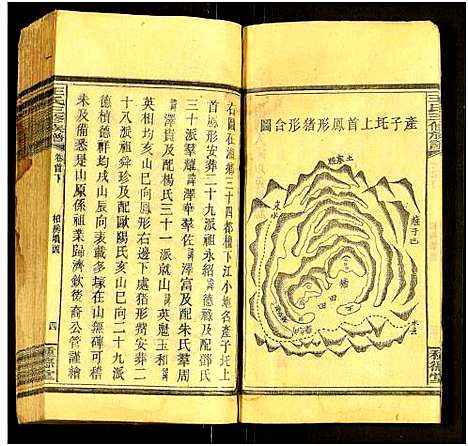 產子圫上首鳳形豬形合圖
豬
田
田
右圖在湘鄉三十四都檀下江小地名產子圫上
首鳳形安葬二十九派祖永紹 德祿及配鄧氏
三十派羣耀 澤華羣佐 澤富及配朱氏羣周
澤貴及配楊氏三十一派就山 英魁玉和
英相均亥山巳向鳳形右邊下處豬形嘴安葬二
十八派祖舜珍及配歐陽氏亥山巳向二十九派
德楨德祥均戌山辰向表載多塚在山無碑可稽
未及備悉是山原係祖業歸濟欽後裔公管謹繪
王氏三修族譜
卷首下
柏房墳圖
四